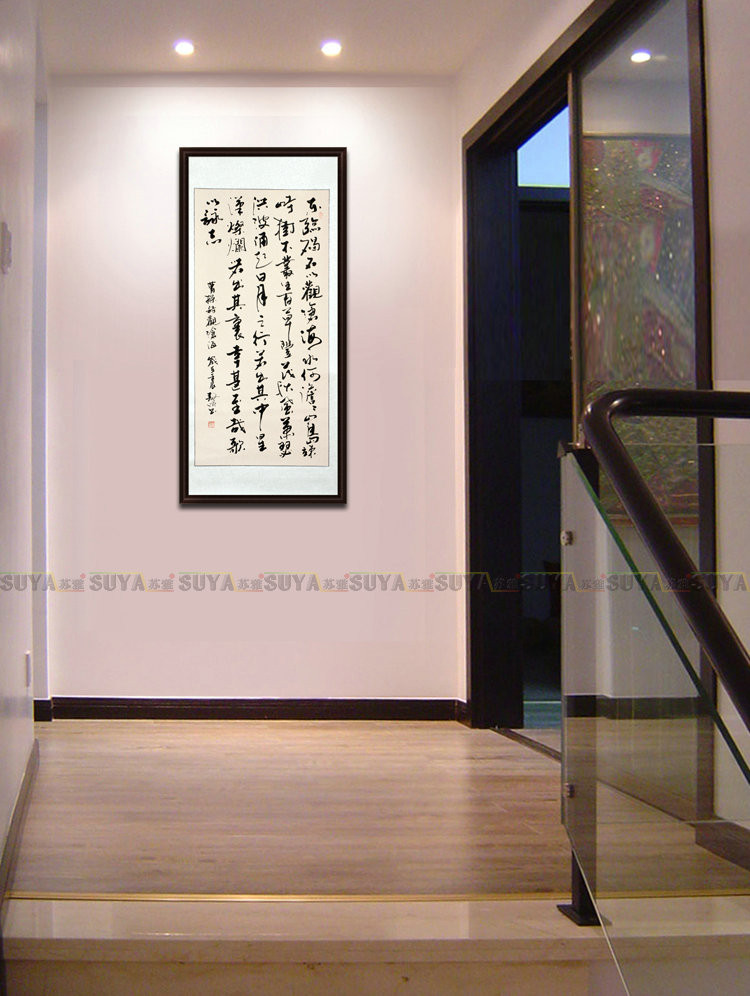 东臨碣石以觀滄海水何澹〻山島竦
峙樹木叢生百草豐茂秋風蕭瑟
洪波涌起日月之行若出其中星
漢燦爛若出其裏幸甚至哉歌
以詠志
曹操詩觀滄海
SUYA苏雅 SUYA苏雅 SUYA苏雅 SUYA苏雅 SUYA苏雅 SUYA苏雅 SUYA苏雅 SUYA苏雅 SUYA